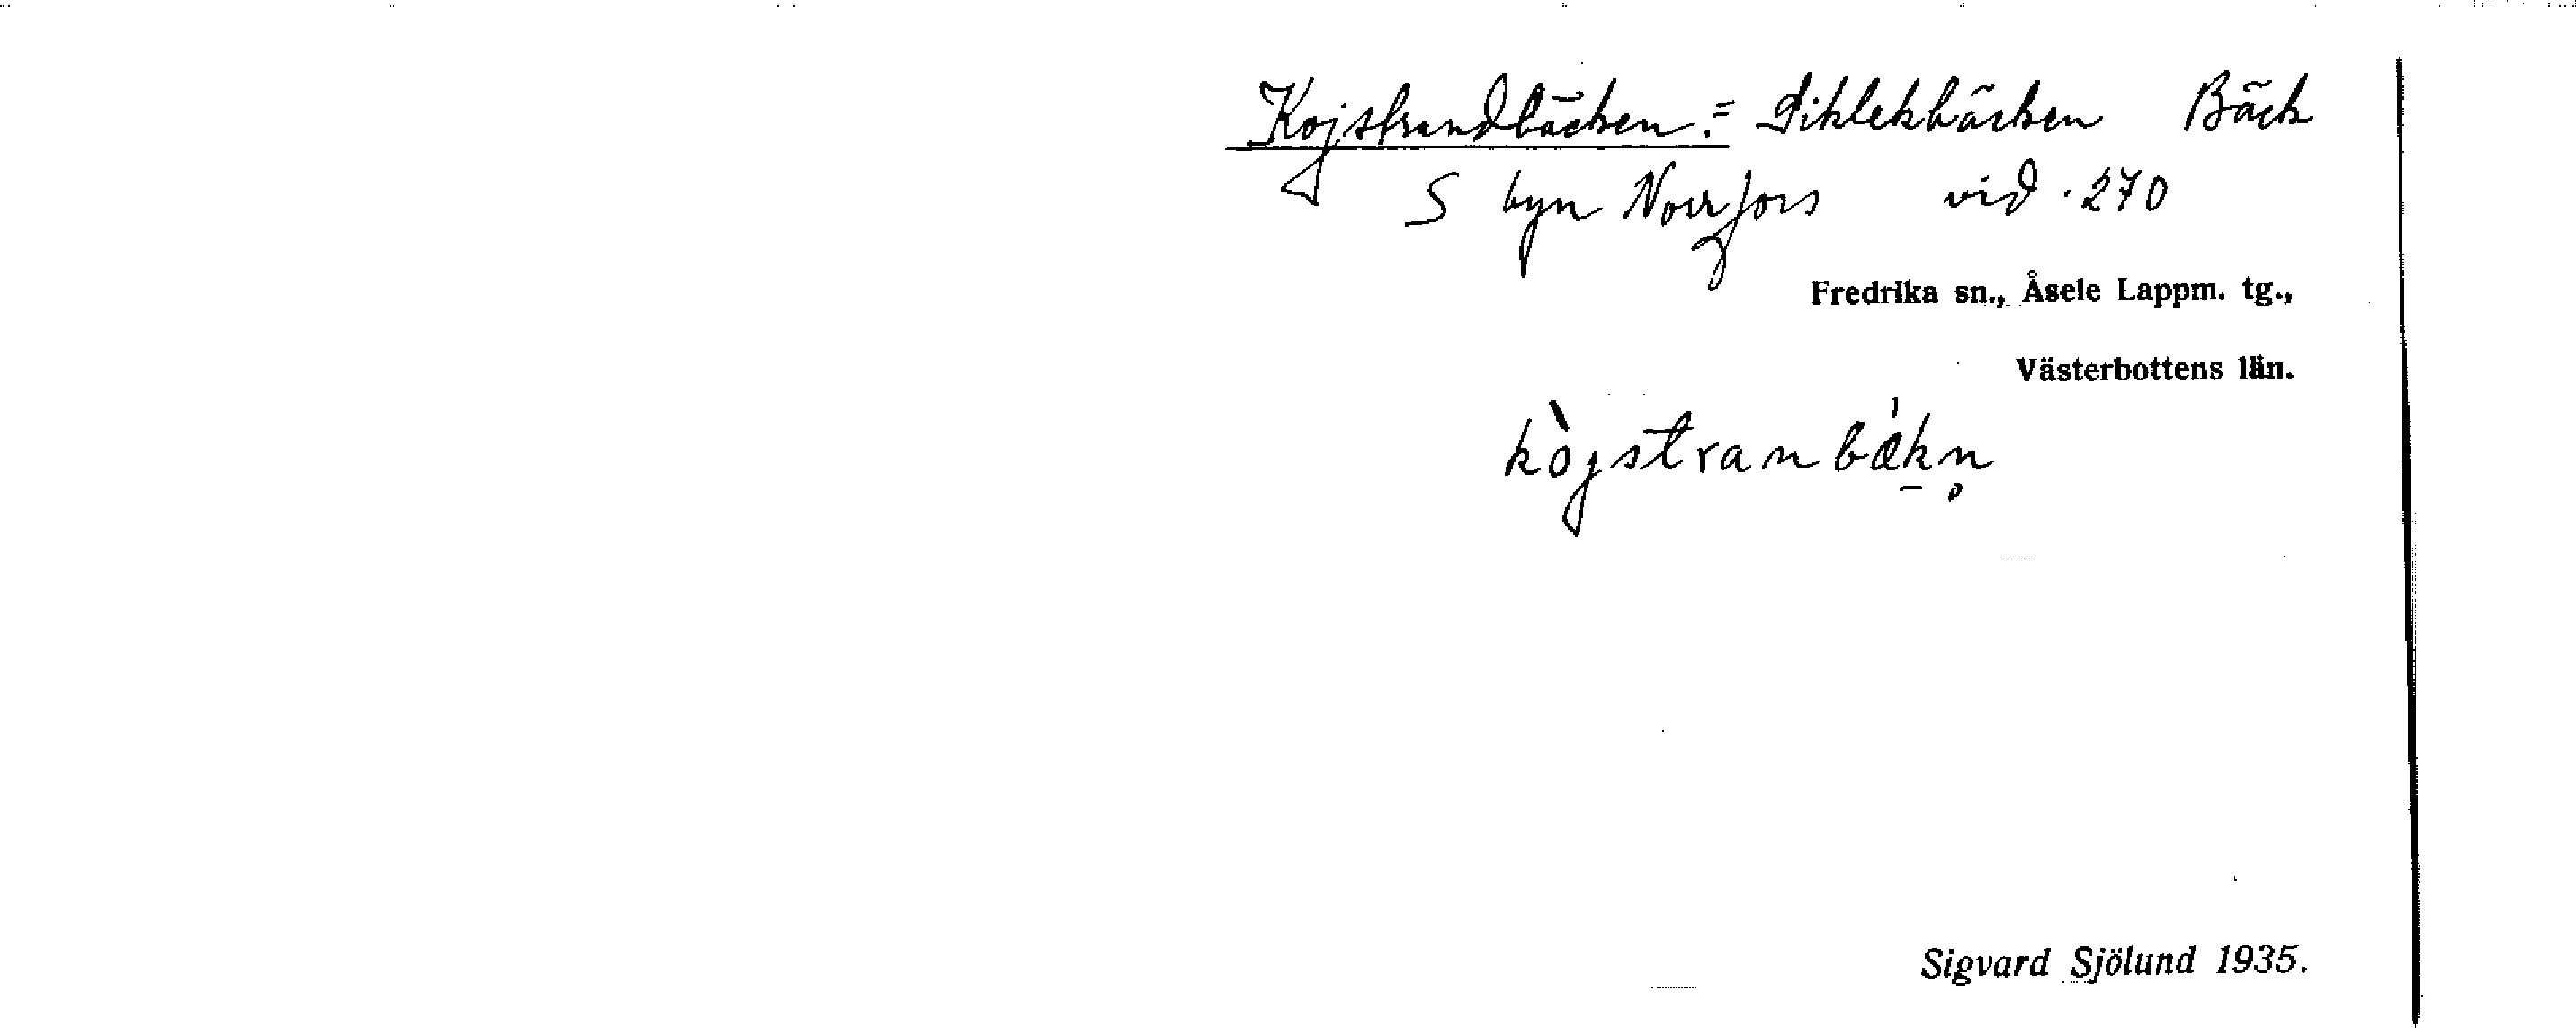 Kojstrandbäcken = Siklekbäcken Bäck
S byn Norrfors vid 270
Fredrika sn., Åsele Lappm. tg.,
Västerbottens län.
kòjstranbækn̥
Sigvard Sjölund 1935.